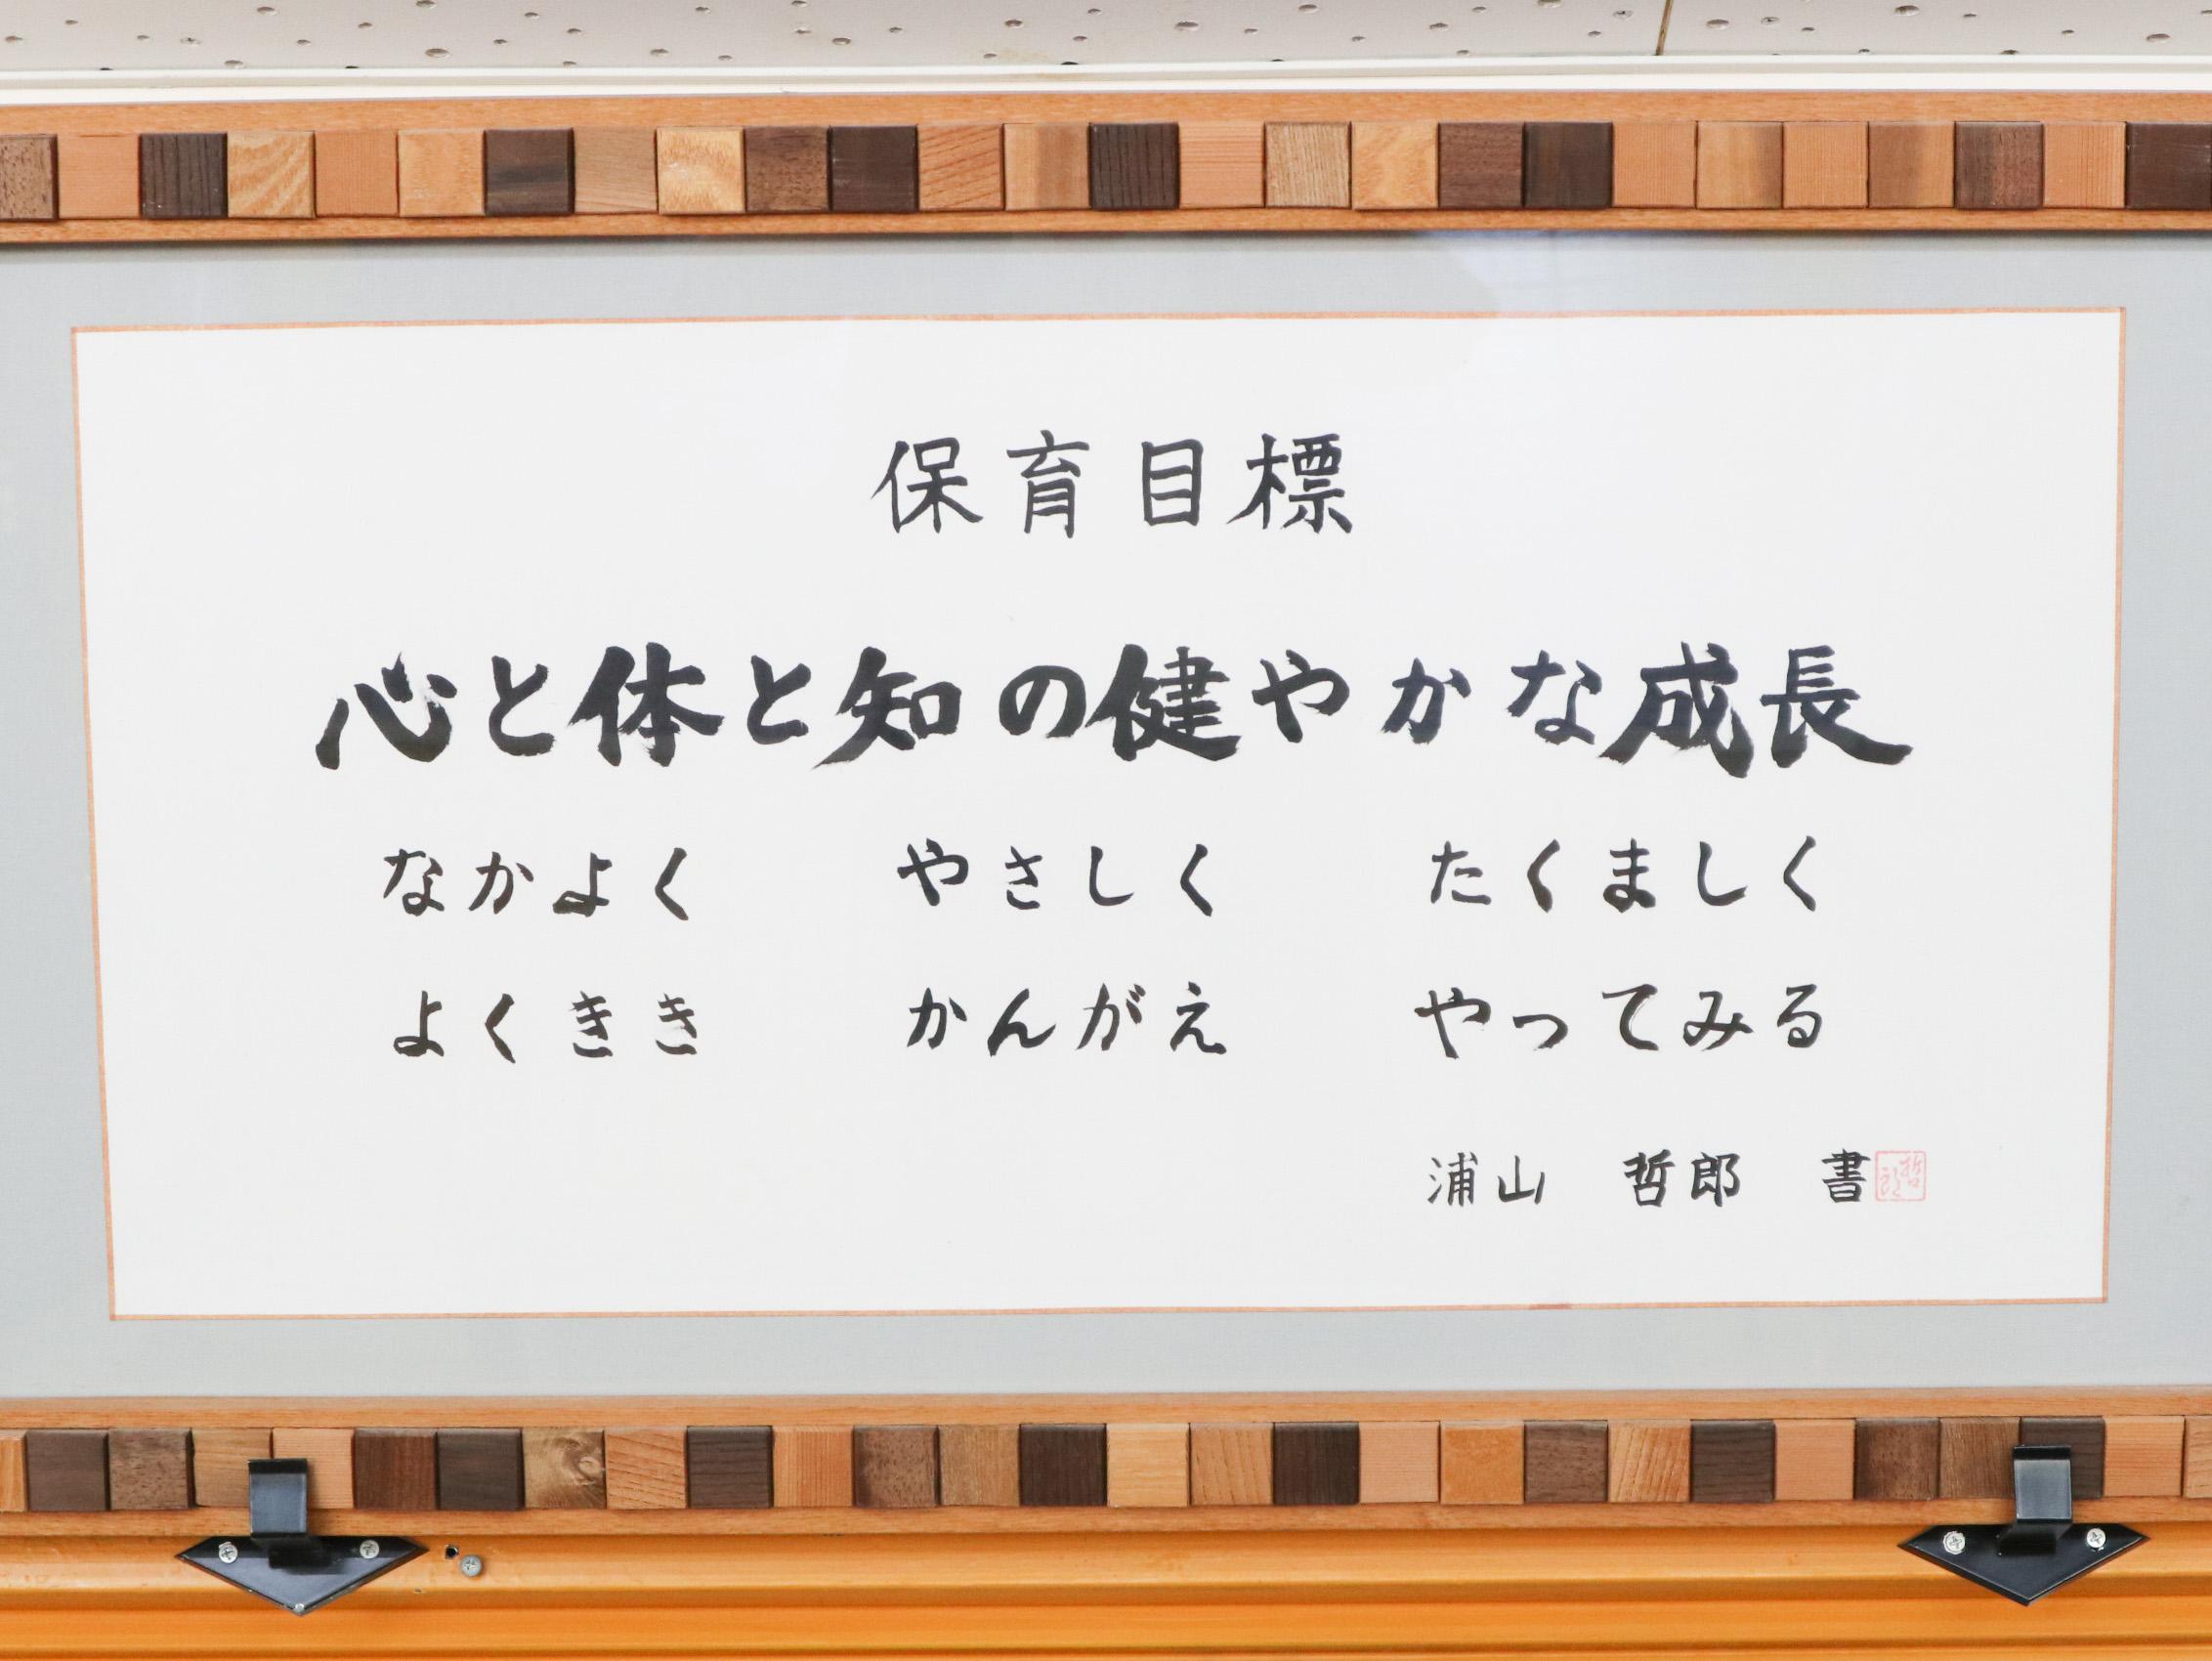 保育目標
心と体と知の健やかな成長
なかよく　やさしく　たくましく
よくきき　かんがえ　やってみる
浦山　哲郎　書
哲郎